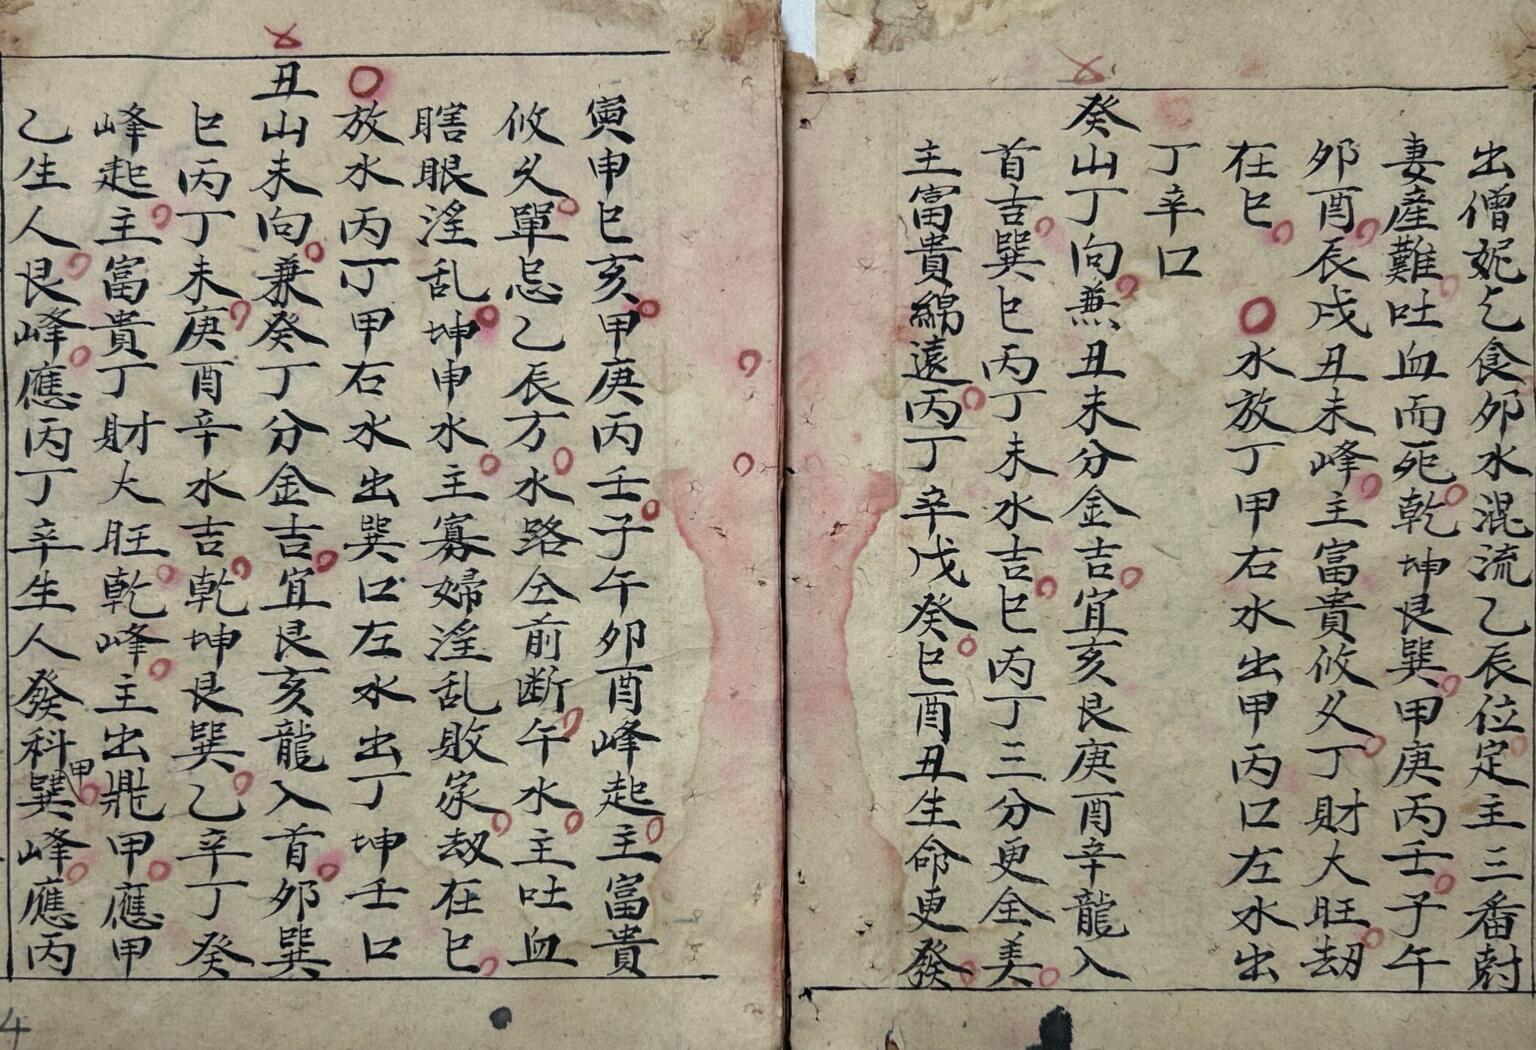 出僧妮乞食夘水混流乙辰位定主三番尅
妻產難吐血而死乾坤艮巽甲庚丙壬子午
夘酉辰戌丑未峰主富貴攸久丁財大旺刼
在巳 水放丁甲右水出甲丙口左水出
丁辛口
癸山丁向兼丑未分金吉宜亥艮庚酉辛龍入
首吉巽巳丙丁未水吉巳丙丁三分更全美
主富貴綿遠丙丁辛戊癸巳酉丑生命更發
寅申巳亥甲庚丙壬子午夘酉峰起主富貴
攸久單忌乙辰方水路仝前断午水主吐血
瞎眼滛乱坤申水主寡婦淫乱敗家刼在巳
放水丙丁甲右水出巽口左水出丁坤壬口
丑山未向兼癸丁分金吉宜艮亥龍入首夘巽
巳丙丁未庚酉辛水吉乾坤艮巽乙辛丁癸
峰起主富貴丁財大旺乾峰主出鼎甲應甲
乙生人艮峰應丙丁辛生人發科甲巽峰應丙
4